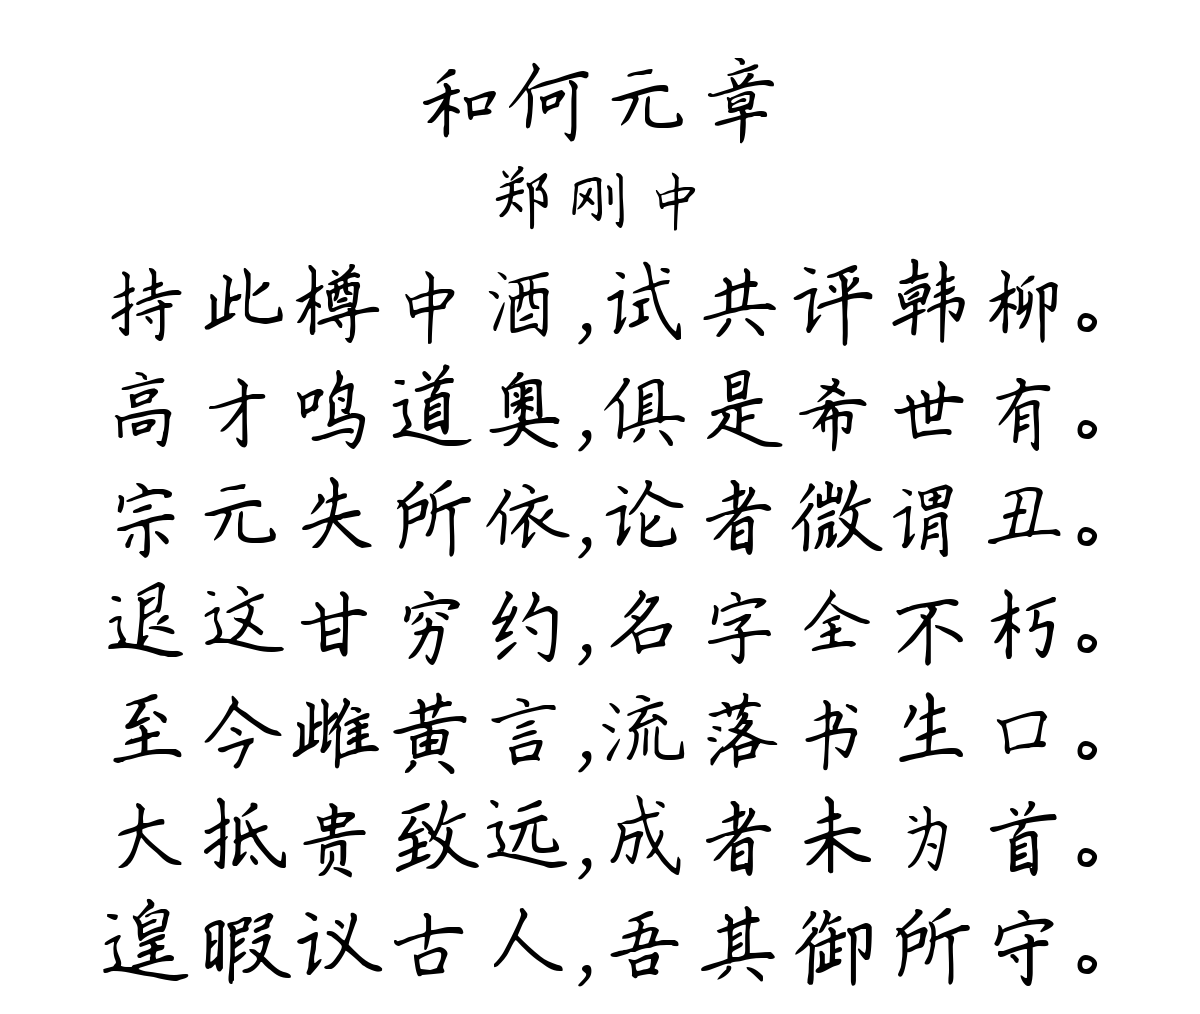 和何元章
郑刚中
持此樽中酒,试共评韩柳。
高才鸣道奥,俱是希世有。
宗元失所依,论者微谓丑。
退这甘穷约,名字全不朽。
至今雌黄言,流落书生口。
大抵贵致远,成者未为首。
遑暇议古人,吾其御所守。